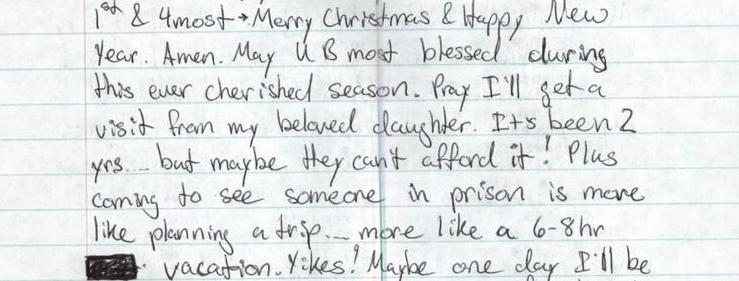 1st & 4most → Merry Christmas & Happy New
Year. Amen. May U B most blessed during
this ever cherished season. Pray I'll get a
visit from my beloved daughter. It's been 2
yrs... but maybe they can't afford it! Plus
coming to see someone in prison is more
like planning a trip... more like a 6-8hr
vacation. Yikes! Maybe one day I'll be